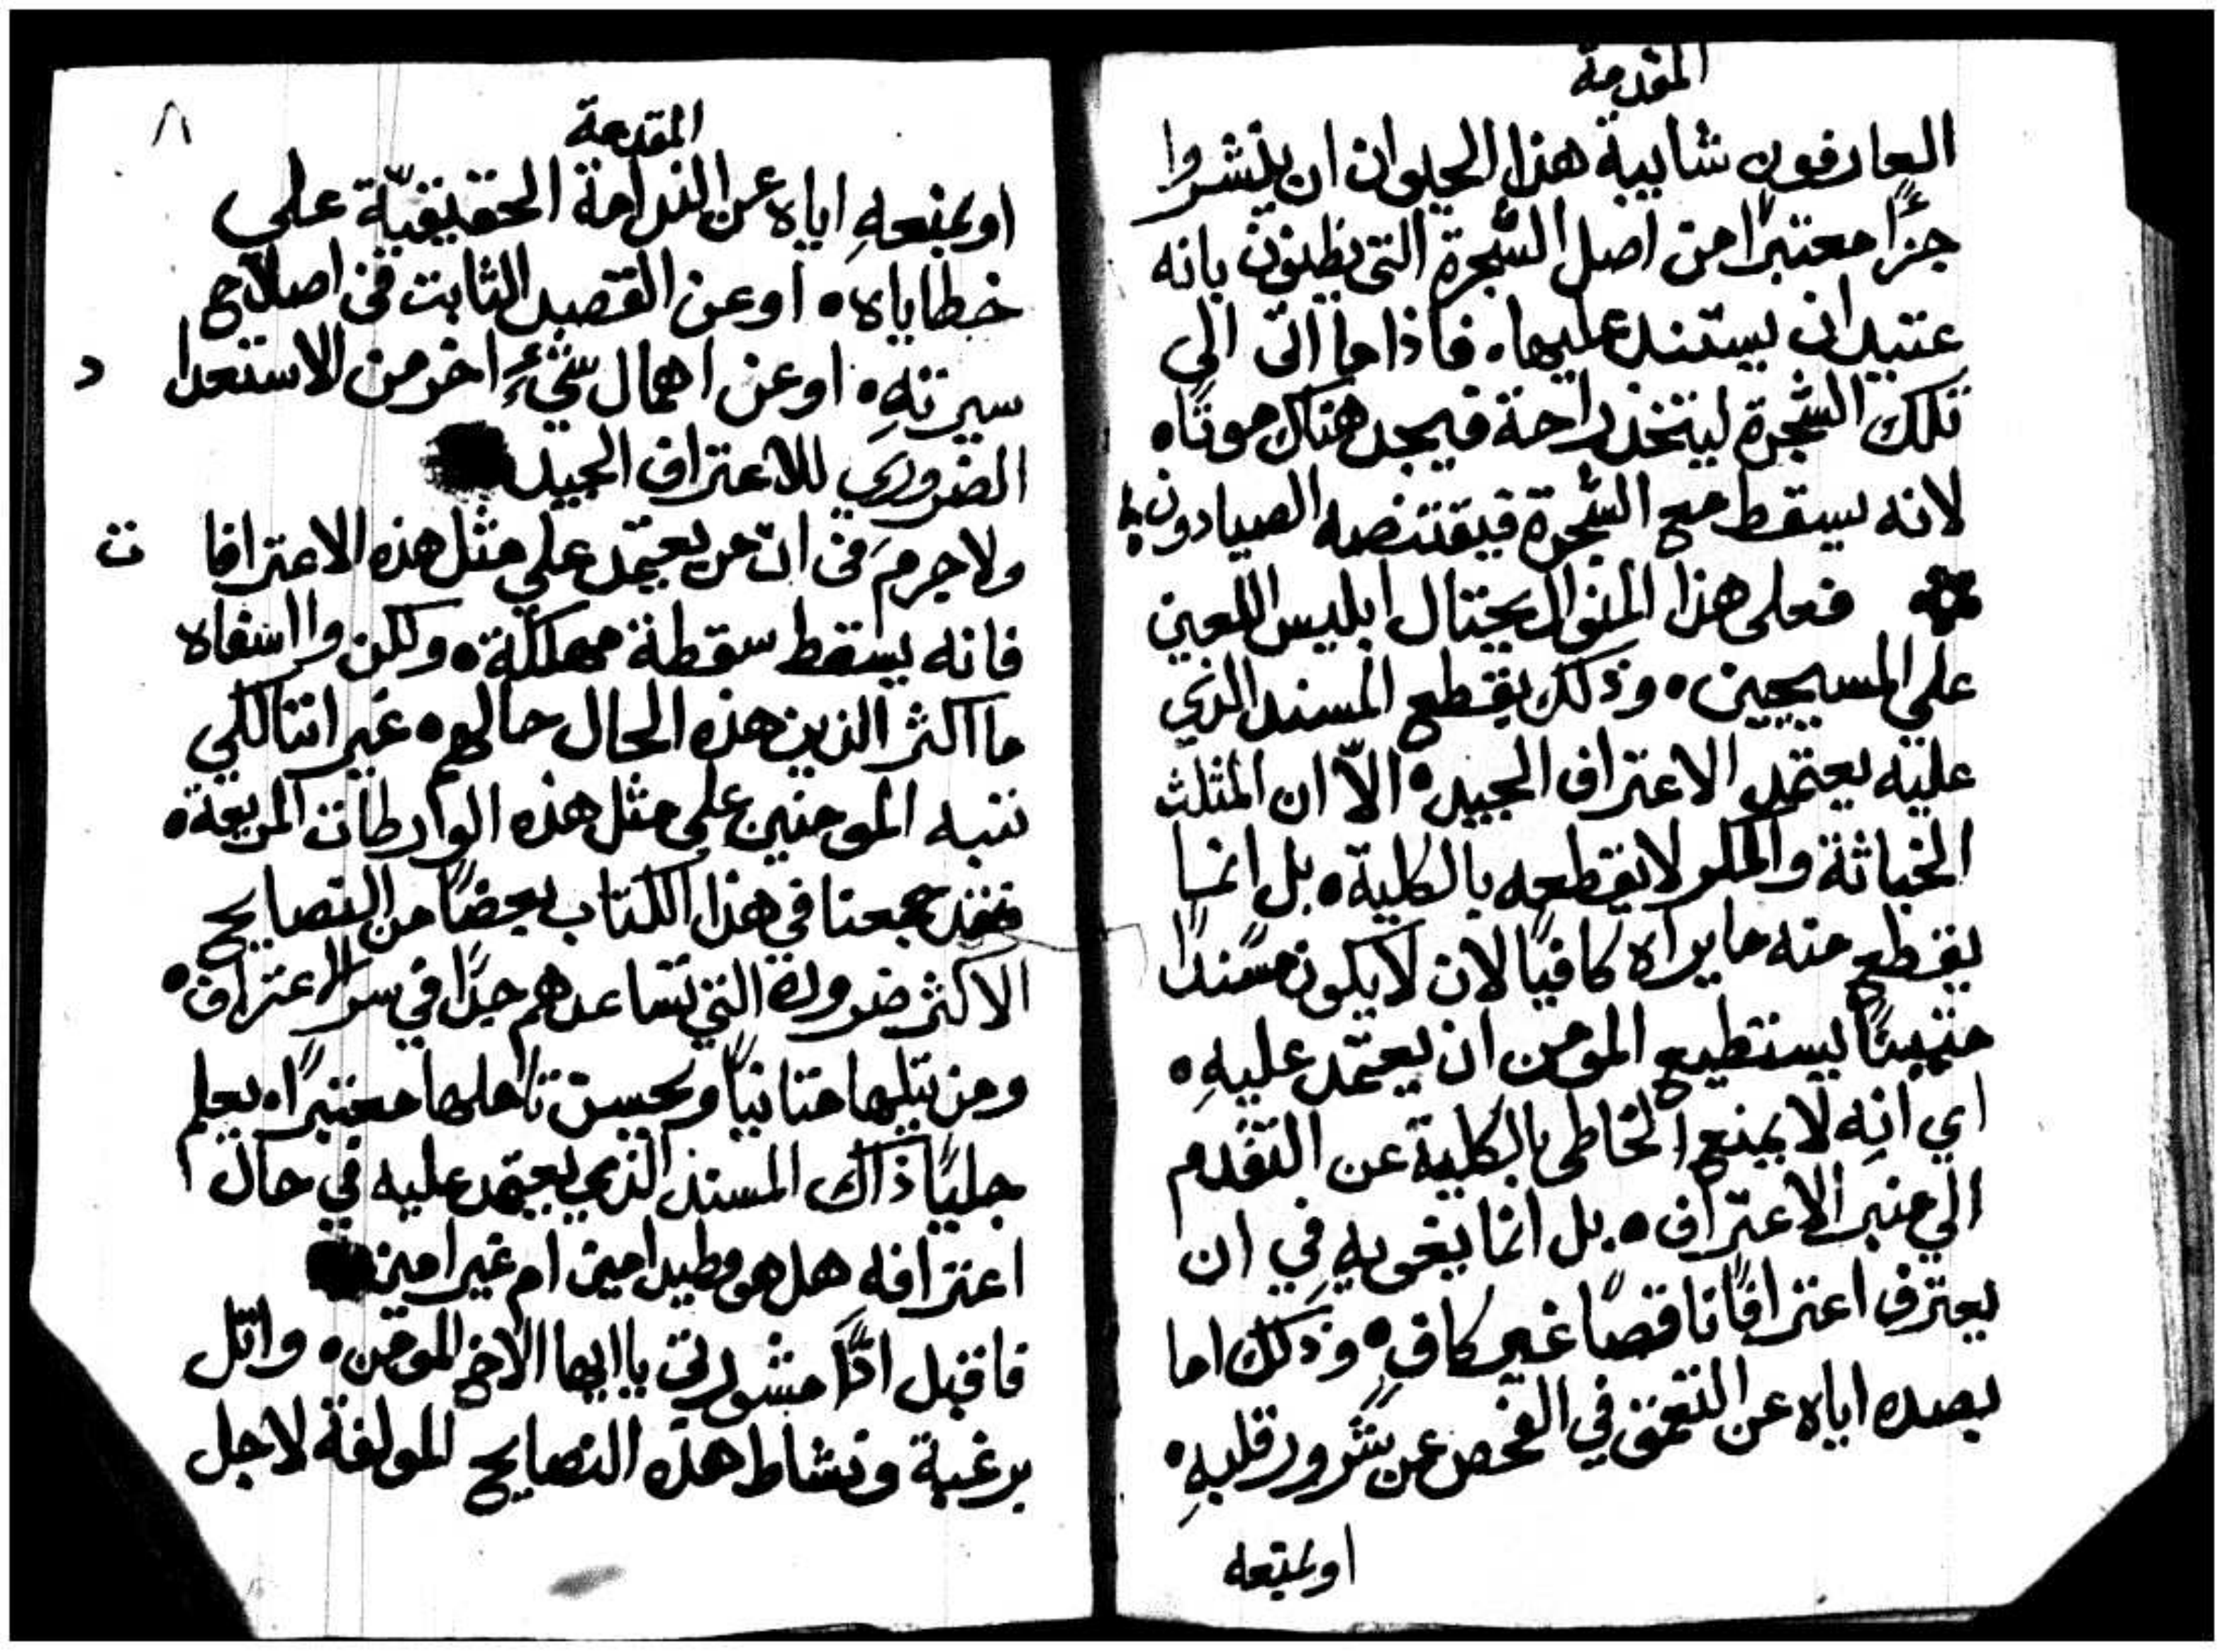 المقدمة
العارفون شايبة هذا الحيوان ان ينشروا
جزءًا معتبرًا من اصل الشجرة التي يظنون بانه
عتيد ان يستند عليها. فاذا ما اتى الي
تلك الشجرة ليتخذ راحة فيجد هناك موتًا.
لانه يسقط مع الشجرة فيقتنصه الصيادون
فعلى هذا المنوال يحتال ابليس اللعين
علي المسيحيين. وذلك بقطع المسند الذي
عليه يعتمد الاعتراف الجيد. الّا ان المثلث
الخباثة والمكر لا يقطعه بالكلية. بل انما
يقطع منه ما يراه كافيًا لان لا يكون مسندًا
متينًا يستطيع المومن ان يعتمد عليهِ.
اي انهِ لا يمنع الخاطي بالكلية عن التقدم
الي منبر الاعتراف. بل انما يغويهِ في ان
يعترف اعترافًا ناقصًا غير كافٍ. وذلك اما
بصده اياه عن التعمق في الفحص عن شرور قلبهِ.
او بمنعه
٨
المقدمة
او بمنعهِ اياه عن الندامة الحقيقيّة علي
خطاياه. او عن القصد الثابت في اصلاح
سيرتهِ. او عن اهمال شيءٍ اخر من الاستعدا د
الضروري للاعتراف الجيد
ولا جرمَ في انّ من يعتمد علي مثل هذه الاعترافا ت
فانه يسقط سقطة مهلكة. ولكن وااسفاه
ما اكثر الذين هذه الحال حالهم. غير اننا لكي
ننبه المومنين علي مثل هذه الوارطات المريعة.
فقد جمعنا في هذا الكتاب بعضًا من النصايح
الاكثر ضرورة التي تساعدهم جدًا في سر الاعتراف.
ومن يتليها متانيًا ويحسن تاملها معتبرًا. يعلم
جليًا ذاك المسند الذي يعتمد عليه في حال
اعترافه هل هو وطيد امين ام غير امين
فاقبل اذًا مشورتي يا ايها الاخ المومن. واتل
برغبة ونشاط هذه النصايح المولفة لاجل